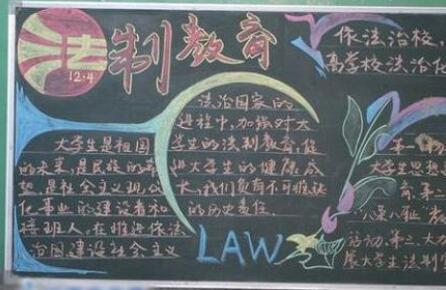 法制教育
12.4
大学生是祖国
的未来,是民族的希
望,是社会主义现代
化事业的建设者和
接班人,在推进依法
治国,建设社会主义
法治国家的
进程中,加强对大
学生的法制教育,促
进大学生的健康成
长,我们负有不可推卸
的历史责任.
LAW
依法治校
高学校法治化
第一
大学生思想
育.第
活动.第三.大
展大学生法制